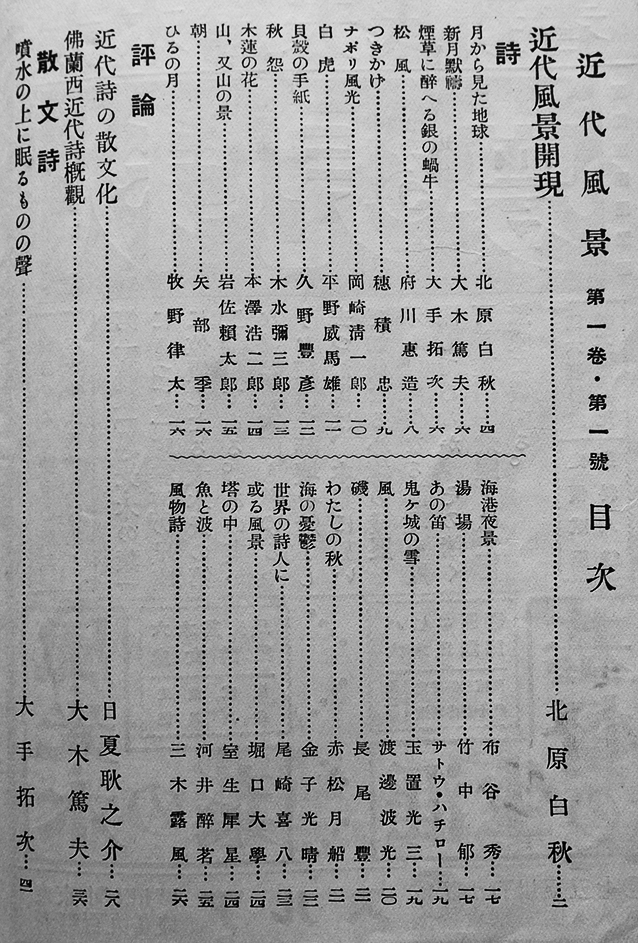 近代風景 第一卷・第一號 目次
近代風景開現……北原白秋……二
詩
月から見た地球……北原白秋…四
新月默禱……大木篤夫…六
煙草に醉へる銀の蝸牛……大手拓次…六
松風……府川惠造…八
つきかけ……穗積忠…九
ナポリ風光……岡崎淸一郎…一〇
白虎……平野威馬雄…一一
貝殻の手紙……久野豐彦…一二
秋怨……木水彌三郎…一三
木蓮の花……本澤浩二郎…一四
山、又山の景……岩佐賴太郎…一五
朝……矢部季…一六
ひるの月……牧野律太…一六
海港夜景……布谷秀…一七
湯場……竹中郁…一七
あの笛……サトウ・ハチロー…一九
鬼ケ城の雪……玉置光三…一九
風……渡邊波光…二〇
磯……長尾豐…二一
わたしの秋……赤松月船…二一
海の憂鬱……金子光晴…二二
世界の詩人に……尾崎喜八…二三
或る風景……堀口大學…二四
塔の中……室生犀星…二四
魚と波……河井醉茗…二五
風物詩……三木露風…二六
評論
近代詩の散文化……日夏耿之介…二八
佛蘭西近代詩概觀……大木篤夫…三六
散文詩
噴水の上に眠るものの聲……大手拓次…四一